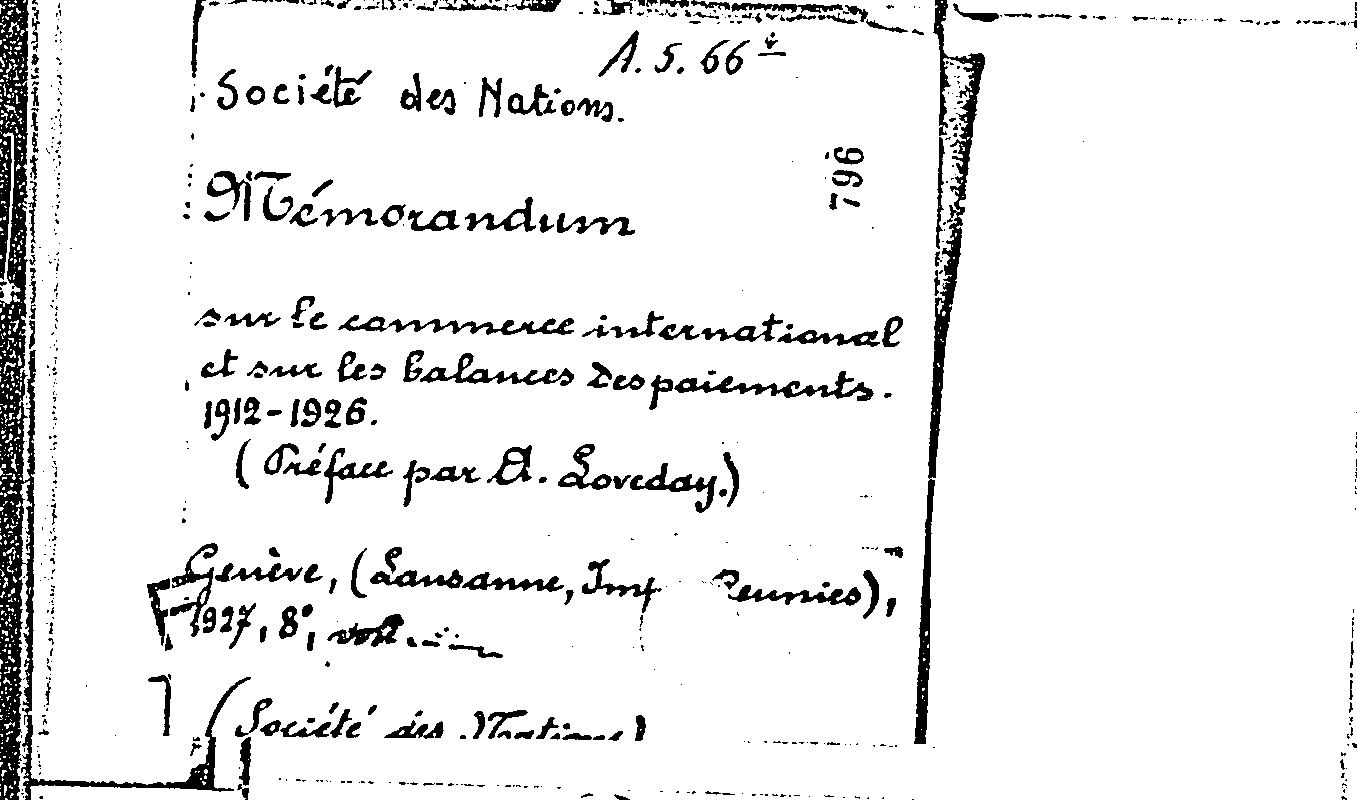 A.S. 66
Société des Nations.
796
Mémorandum
sur le commerce international
et sur les balances des paiements.
1912-1926.
(Préface par A. Loveday.)
Genève, (Lausanne, Imp Réunies),
1927, 8°,
(Société des Nations)